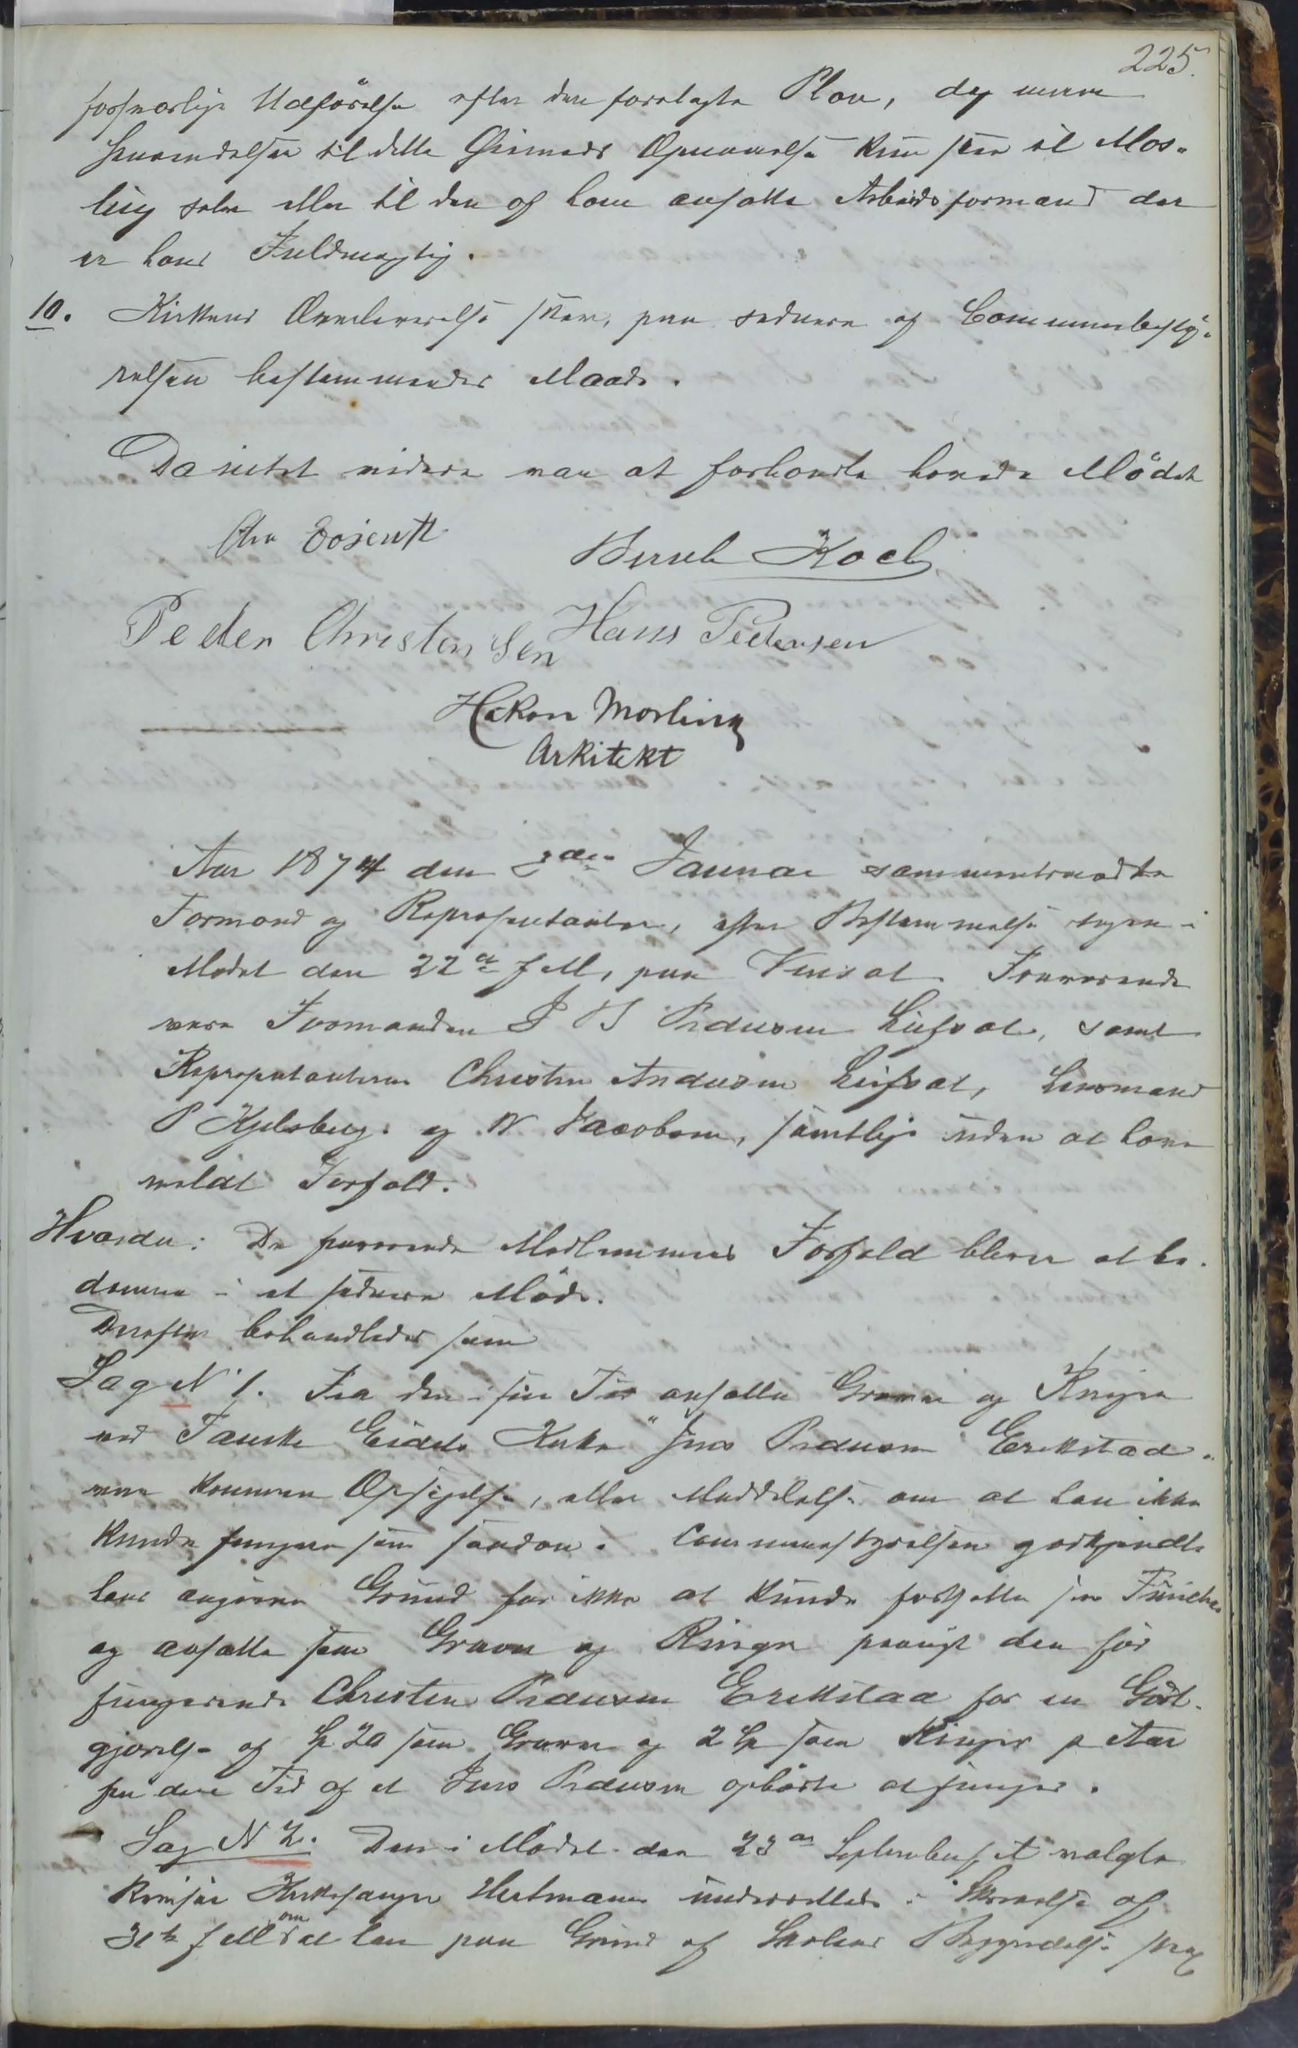 225.
forsvarlige Udførelse efter den forelagte Plan, dog maa
Henvendelser til dette Øiemeds Opnaaelse kun skee til Mos-
ling selv eller til den af ham ansatte Arbeidsformand der
er hans Fuldmægtig.
10. Kirkens Overleverelse skeer, paa sednere af Communebesty-
relsen bestemmendes Maade.
Da intet videre var at forhandle hævede Mødet
Chr
Koch
Peder Christensen Hans Pedersen
Håkon Mosling
Arkitekt
Aar 1874 den 2den Januar sammentraadte
Formand og Repræsentanter, efter Bestemmelse tagen i
Mødet den 22de f M, paa Fauske. Fraværende
vare Formanden P Pedersen Leifset, samt
Repræsentanterne Christen Andersen Leifset, Lensmand
P Kjelsberg og N Jacobsen, samtlige uden at have
meldt Forfald.
Hvorda: De fraværende Medlemmers Forfald bliver at be-
dømme i et sednere Møde.
Derefter behandledes som
Sag N 1. Fra den i sin Tid ansatte Graver og Ringer
ved Fauske Eidets Kirke Jens Pedersen Erikstad
var kommen Opsigelse, eller Meddelelse om at han ikke
kunde fungere som saadan. Communestyrelsen godkjendte
hans angivne Grund for ikke at kunde fortsætte sin Function
og ansatte som Graver og Ringer paanyt den før
fungerende Christen Pedersen Erikstad for en Godt-
gjørelse af Sp 20 som Graver og 2 Sp som Ringer p Aar
fra den Tid af at Jens Pedersen ophørte at fungere.
Sag N 2. Den i Mødet den 23de September f A valgte
Revisor Kirkesanger Hertmann underrettede i Skrivelse af
31te f M om at han paa Grund af Skolens Begyndelse strax